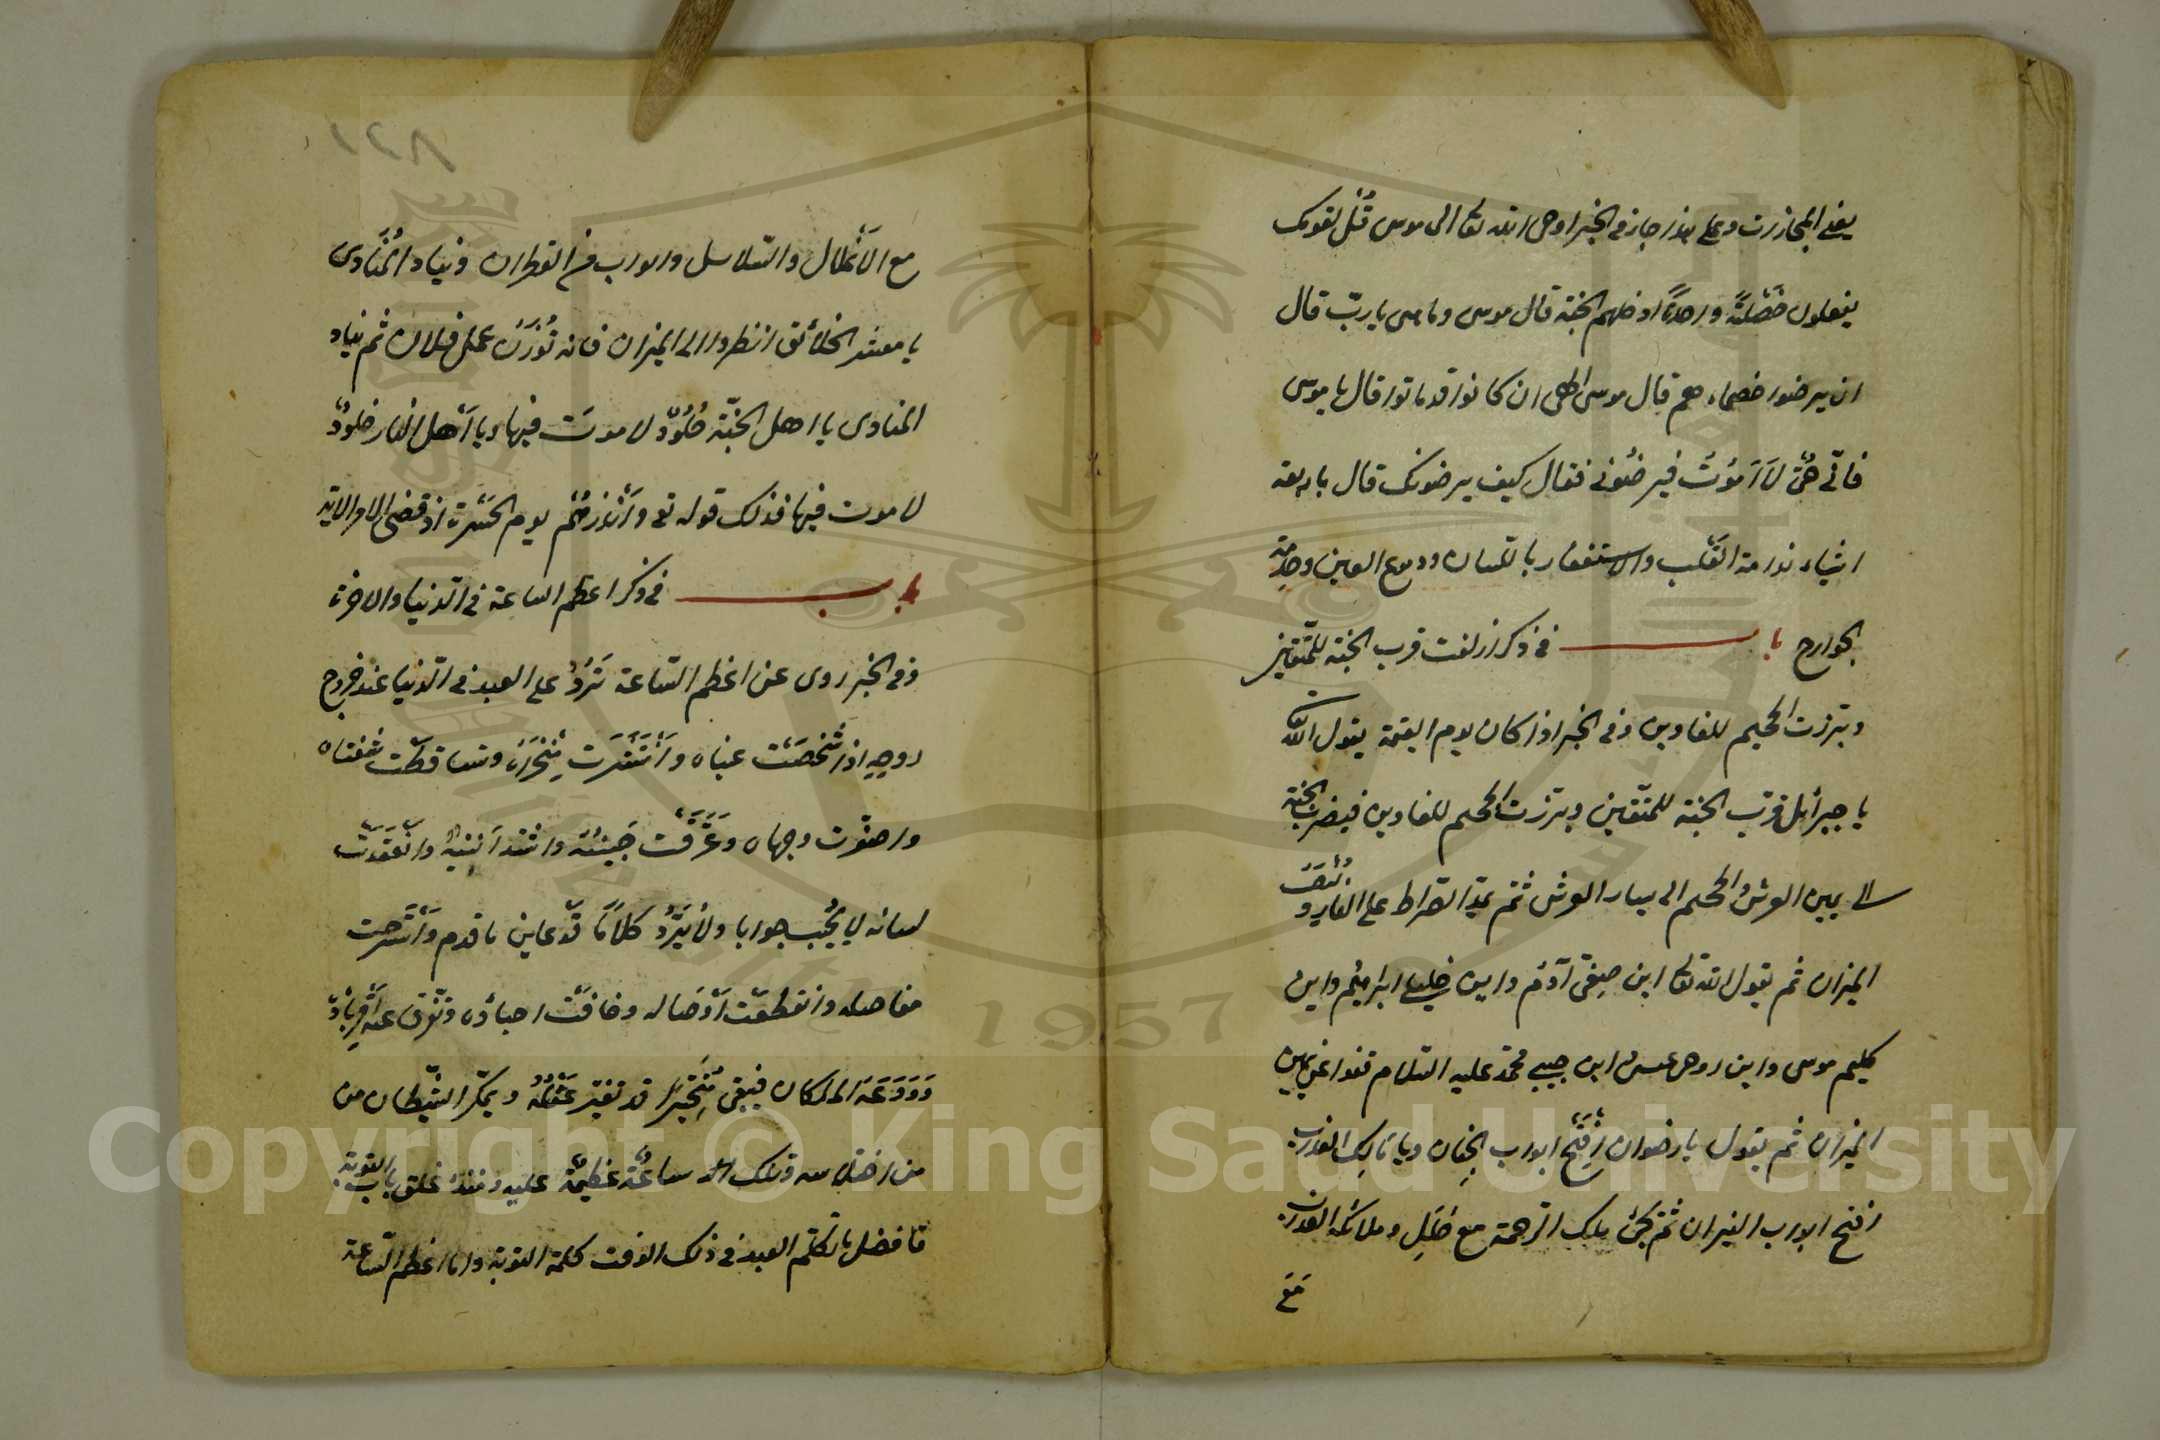 يعني المجازرت وعلى هذا جاز في الخبر اوحى الله تعا الى موسى قُل لقومك
يفعلون خَصْلةً واحدةً ادخلهم الجنة قال موسى وما هى يا ربّ قال
ان يرضوا خصماءهم قال موسى الهى ان كانوا قد ماتوا قال يا موسى
فانّى حىّ لا اَموت فيرضُونى فقال كيف يرضونك قال باربعة
اشياء ندامة القلب والاستغفار باللسان ودموع العين وخدمة
الجوارح باب فى ذكر ازلفت قرب الجنة للمتّقين
وبرّزت الجحيم للغاوين وفى الخبر اذا كان يوم القيمة يقول الله
يا جبرائل قرّب الجنة للمتّقين وبرّزت الجحيم للغاوين فيضرب الجنة
الى يمين العرش والجحيم الى يسار العرش ثم يمدّ الصّراط على النار وتُنْصَبُ
الميزان ثم يقول الله تعا اين صفىّ آدم واين خليلى ابراهيم واين
كليم موسى واين روحى عيسى اين حبيبى محمّد عليه السّلام قفوا عن يمين
الميزان ثم يقول يا رضوان اِفْتَحْ ابواب الجِنان ويا مالِك
افتح ابواب النيران ثمّ يجئ ملك الرّحمة مع حُلَلٍ وملائكة العذاب
مَعَ
٨٢١
مع الاَغْلال والسّلاسل واثواب من القطران وينادِ المُنَادى
يا معشر الخلائق انظروا الى الميزان فانه تُوزَنُ عمل فلان ثم يناد
المنادى يا اهل الجنّة خُلُودٌ لا موتَ فيها ويا اَهل النار خلودٌ
لا موت فيها فذلك قوله تع وَاَنْذِرْهُمْ يوم الحَسْرة اذ قضى الامر الاية
باب فى ذكر اعظم الساعة فى الدّنيا والاخرة
وفى الخبر روى عن اعظم السّاعة تَرِدُ على العبد فى الدّنيا عند خروج
روحِهِ اذا شَخَصَتْ عيناه وَانْتَشَرَت مِنْخَراهُ وتساقطَتْ شفتاه
واصفرّت وجهاه وَعَرَقَت جَبِينُهُ واشتد اَنِينُهُ وَانْعَقَدَتْ
لسانه لا يُجِيب جوابا ولا يَرُدُّ كلامًا قَدْ عاين ما قدم وَانْشَرَحت
مفاصله وانقطعَتْ اَوْصَاله وخافَتْ احباؤه وتفرّق عنه اَقْرِباؤُهُ
وَوَدَعَهُ الملكان فيبقى مُتَحَيِّرًا قد تغيّر عَقْلُهُ ويمكّر الشّيطان من
من اختلاسه فتلك اشد ساعةٌ عظيمةٌ عليه وعند غلق باب التوبة
فافضل ما تكلّم العبد فى ذلك الوقت كلمة التوبة واما اعظم السّاعة
Copyright © King Saud University
1957